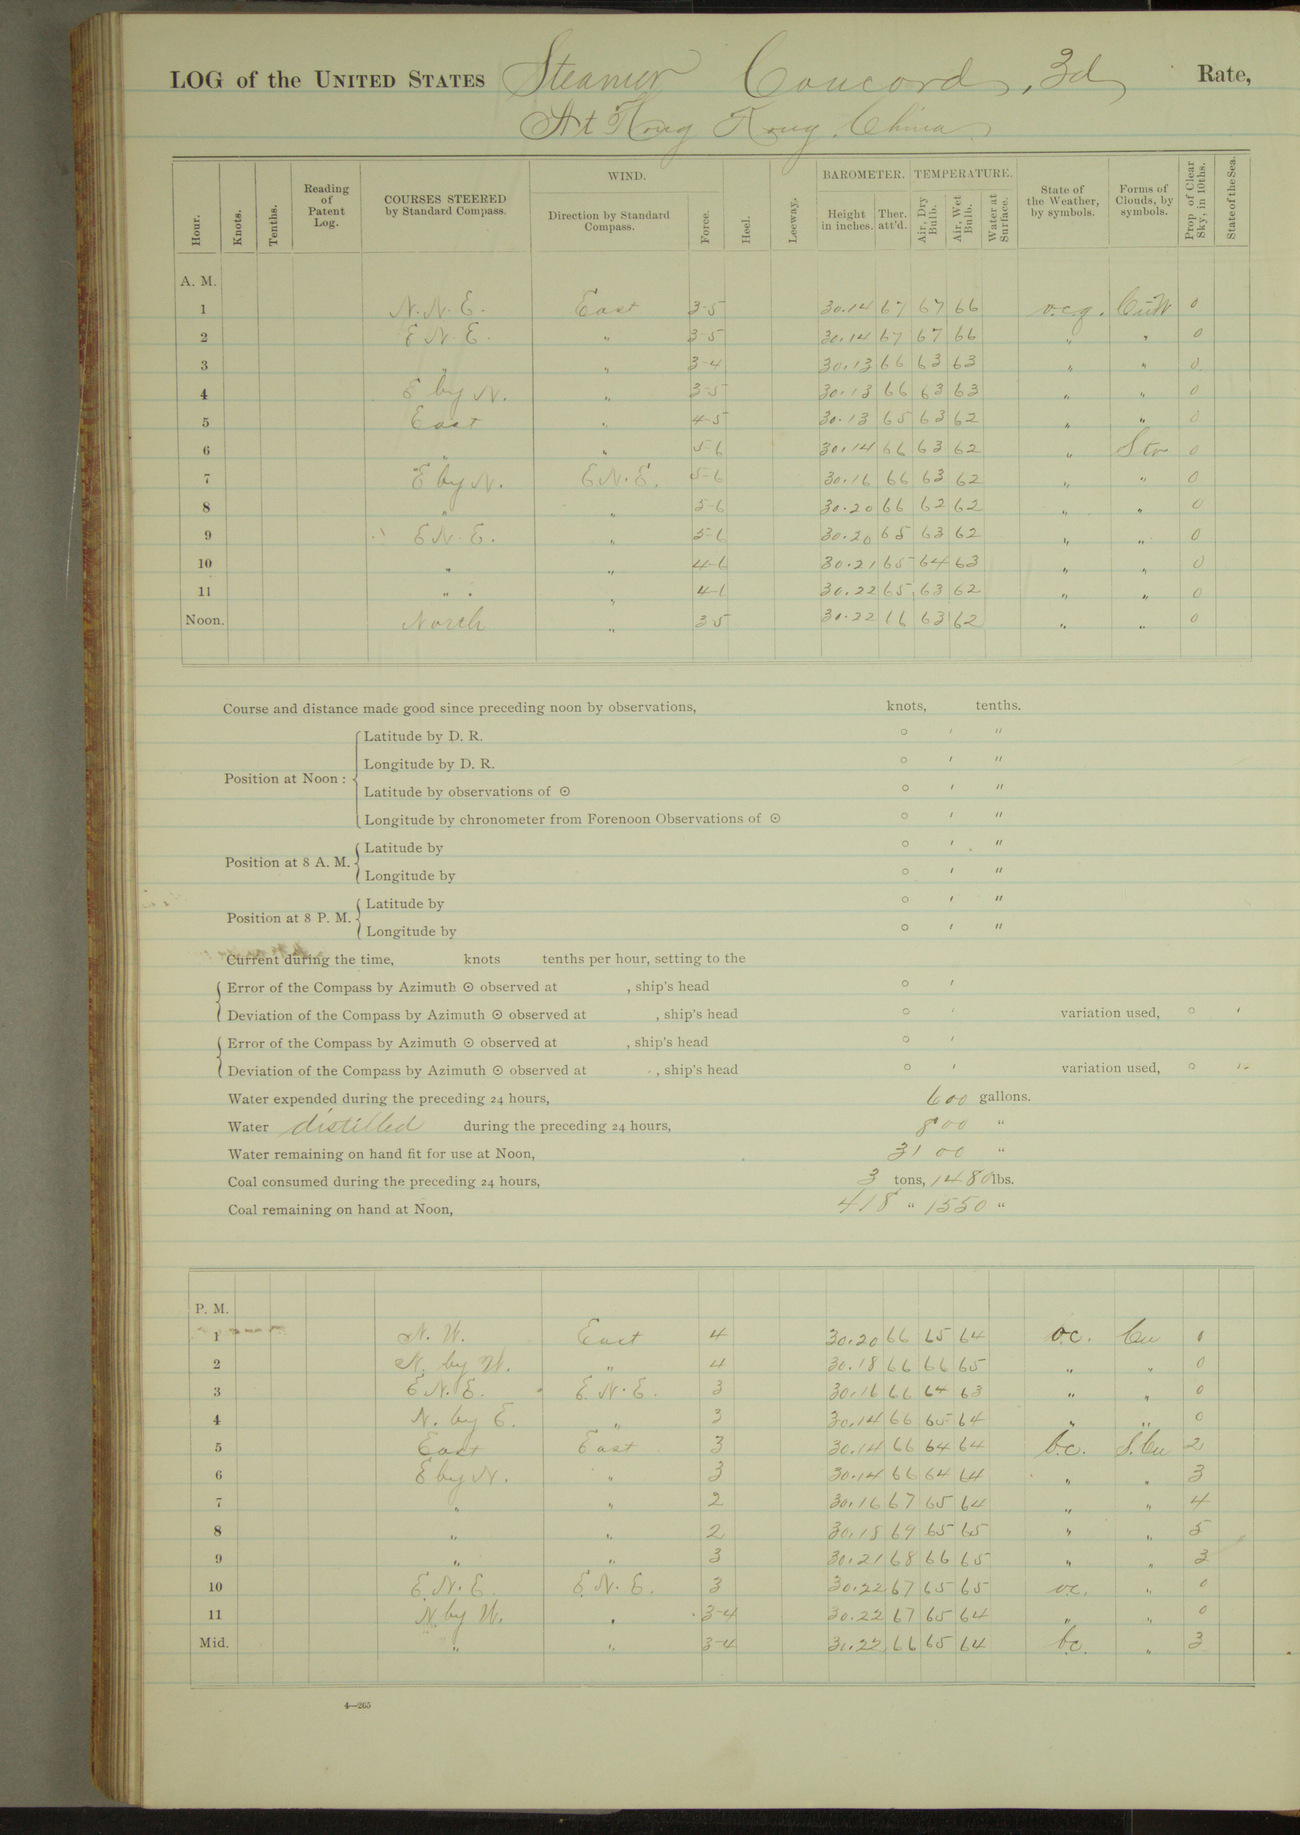 LOG of the UNITED STATES Steamer Concord, 3d Rate,
At Hong Kong, China
Hour. Knots. Tenths. Reading of Patent Log. COURSES STEERED by Standard Compass. WIND. Direction by Standard Compass. Force. Heel. Leeway. BAROMETER. Height in inches. Ther. att'd. TEMPERATURE. Air, Dry Bulb. Air, Wet Bulb. Water at Surface. State of the Weather, by symbols. Forms of Clouds, by symbols. Prop of Clear Sky, in 10ths. State of the Sea.
A. M.
1 N. N. E. East 3-5 30.14 67 67 66 o.c.q. 0
2 E N. E. " 3-5 30.14 67 67 66 " " 0
3 " " 3-4 30.13 66 63 63 " " 0
4 E by N. " 3-5 30.13 66 63 63 " " 0
5 East " 4-5 30.13 65 63 62 " " 0
6 " " 5-6 30.14 66 63 62 " Str 0
7 E by N. E N. E. 5-6 30.16 66 63 62 " " 0
8 " " 5-6 30.20 66 62 62 " " 0
9 E N. E. " 5-6 30.20 65 63 62 " " 0
10 " " 4-6 30.21 65 64 63 " " 0
11 " " 4-6 30.22 65 63 62 " " 0
Noon. North " 3-5 30.22 66 63 62 " " 0
Course and distance made good since preceding noon by observations, knots, tenths.
Position at Noon:
Latitude by D. R. ° ′ ″
Longitude by D. R. ° ′ ″
Latitude by observations of ☉ ° ′ ″
Longitude by chronometer from Forenoon Observations of ☉ ° ′ ″
Position at 8 A. M.
Latitude by ° ′ ″
Longitude by ° ′ ″
Position at 8 P. M.
Latitude by ° ′ ″
Longitude by ° ′ ″
Current during the time, knots tenths per hour, setting to the
Error of the Compass by Azimuth ☉ observed at , ship's head ° ′
Deviation of the Compass by Azimuth ☉ observed at , ship's head ° ′ variation used, ° ′
Error of the Compass by Azimuth ☉ observed at , ship's head ° ′
Deviation of the Compass by Azimuth ☉ observed at , ship's head ° ′ variation used, ° ′
Water expended during the preceding 24 hours, 600 gallons.
Water distilled during the preceding 24 hours, 800 "
Water remaining on hand fit for use at Noon, 3100 "
Coal consumed during the preceding 24 hours, 3 tons, 1480 lbs.
Coal remaining on hand at Noon, 418 " 1550 "
P. M.
1 N. W. East 4 30.20 66 65 64 o.c. Cu 0
2 N. by W. " 4 30.18 66 66 65 " " 0
3 E N. E. E. N. E. 3 30.16 66 64 63 " " 0
4 N. by E. " 3 30.14 66 65 64 " " 0
5 East East 3 30.14 66 64 64 b.c. S.Cu 2
6 E by N. " 3 30.14 66 64 64 " " 3
7 " " 2 30.16 67 65 64 " " 4
8 " " 2 30.18 69 65 65 " " 5
9 " " 3 30.21 68 66 65 " " 3
10 E. N. E. E. N. E. 3 30.22 67 65 65 o.c. " 0
11 N. by W. " 3-4 30.22 67 65 64 " " 0
Mid. " " 3-4 30.22 66 65 64 b.c. " 3
4—265